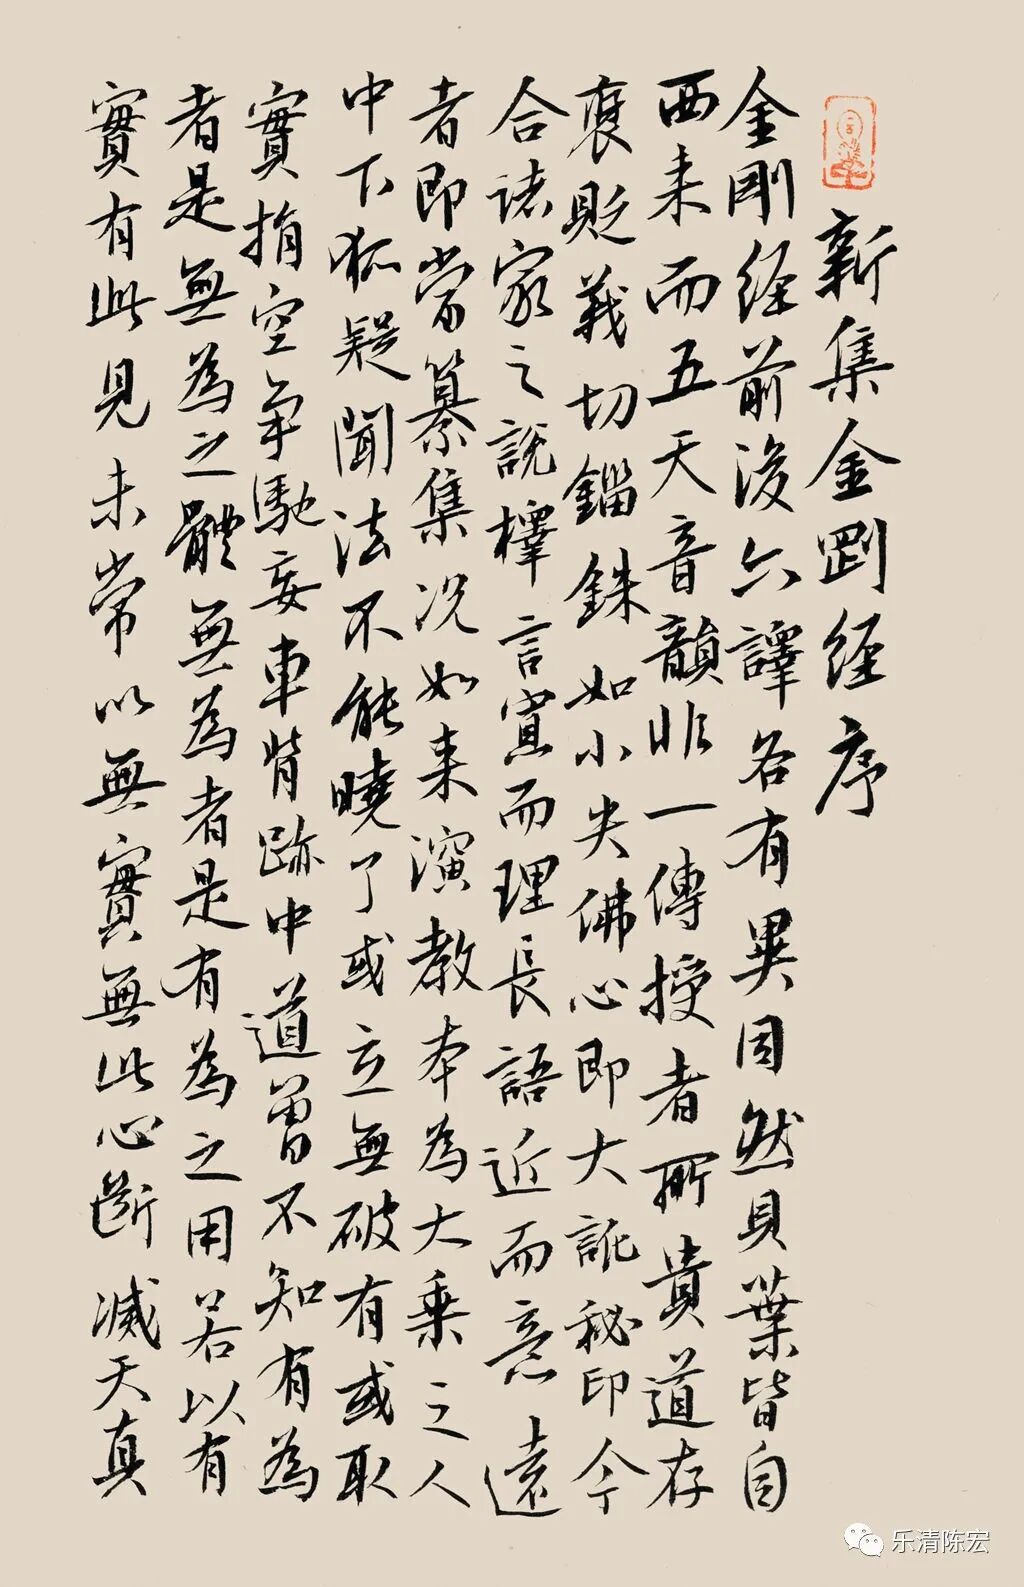 新集金剛經序
金剛經前後六譯各有異同然貝葉皆自
西来而五天音韻非一傳授者所貴道存
褒貶義切錙銖如小失佛心即大訛秘印今
合诸家之說擇言寡而理長語近而意遠
者即常纂集况如来演教本為大乘之人
中下狐疑聞法不能曉了或立無破有或取
實捐空争馳妄車背跡中道曽不知有為
者是無為之體無為者是有為之用若以有
實有此見未常以無實無此心斷滅天真
乐清陈宏